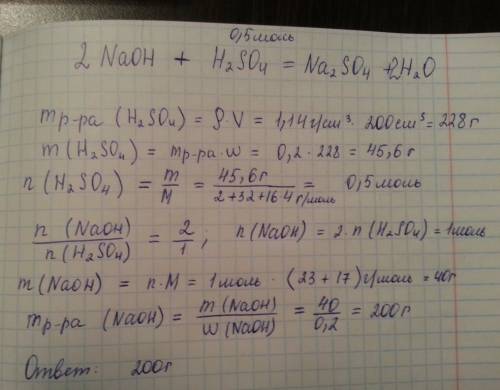 0,5моль
2 NaOH + H₂SO₄ = Na₂SO₄ + 2H₂O
mр-ра (H₂SO₄) = ρ·V = 1,14 г/cm³ · 200cm³ = 228 г
m (H₂SO₄) = mр-ра·w = 0,2 · 228 = 45,6 г
n (H₂SO₄) = m/M = 45,6г/(2+32+16·4 г/моль) = 0,5 моль
n (NaOH)/n (H₂SO₄) = 2/1 ; n (NaOH) = 2·n (H₂SO₄) = 1моль
m (NaOH) = n·M = 1 моль · (23+17) г/моль = 40г
mр-ра (NaOH) = m (NaOH)/w (NaOH) = 40/0,2 = 200г
Ответ: 200г